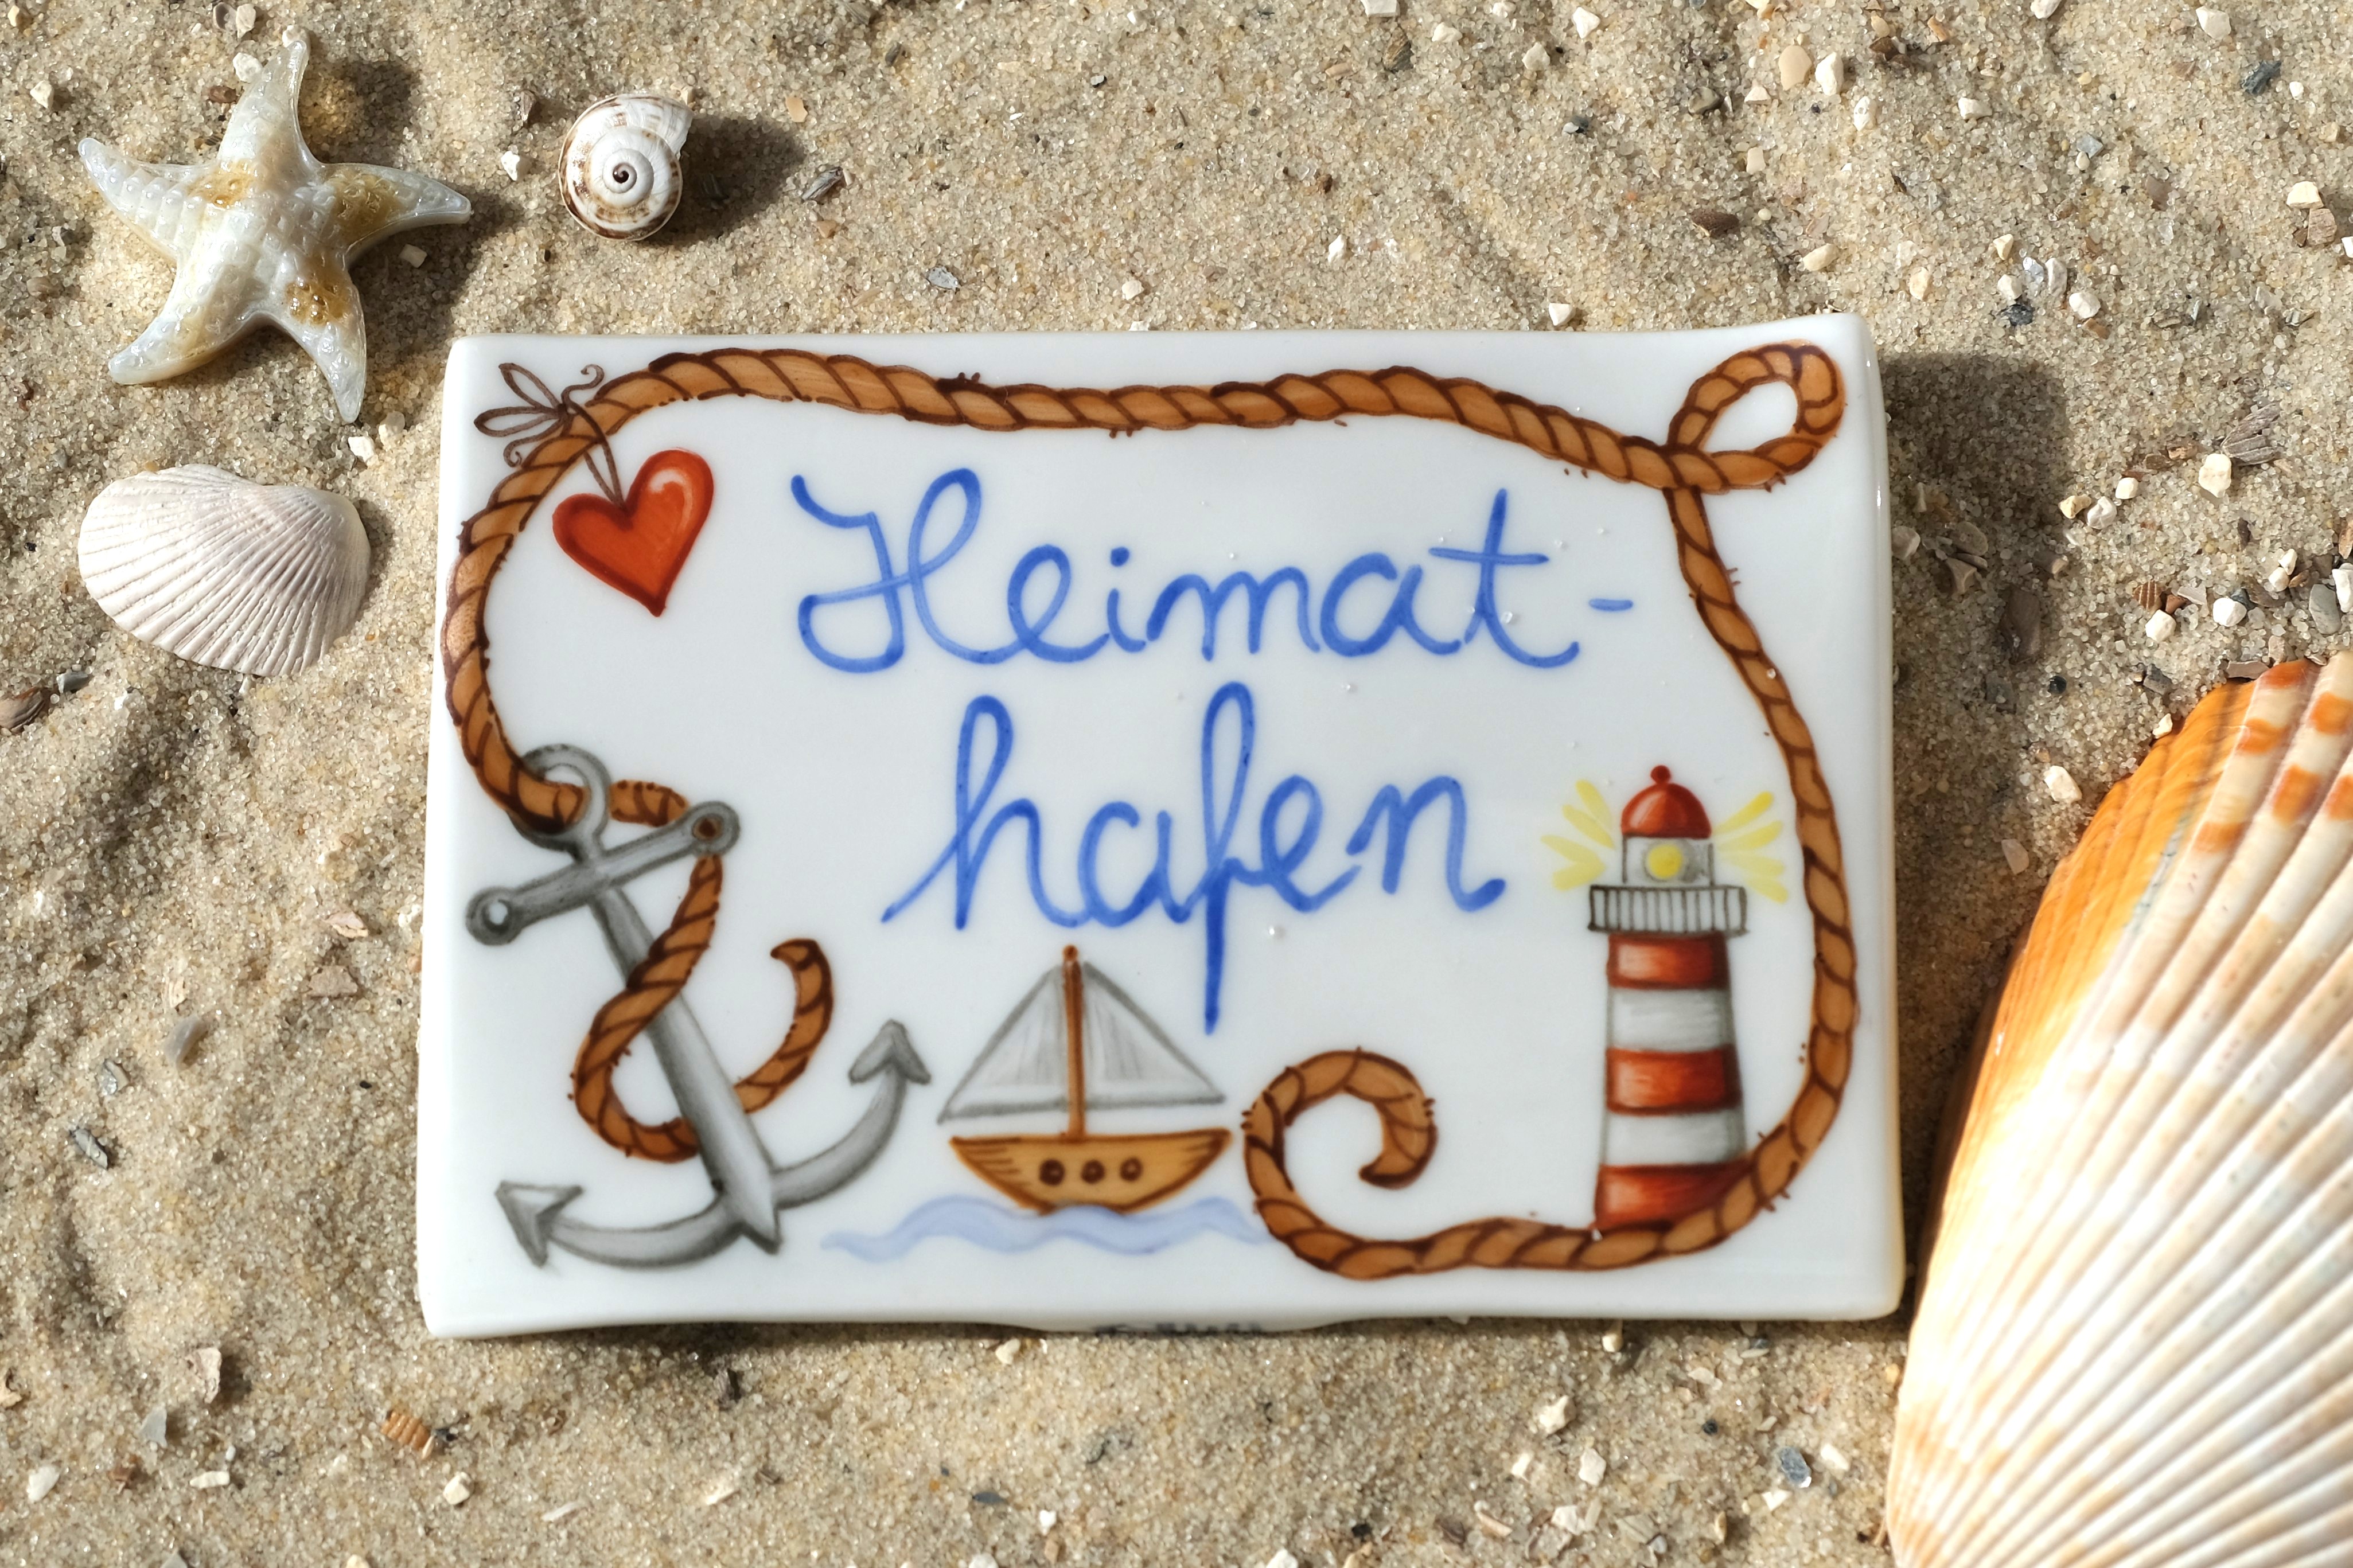 Heimat-
hafen